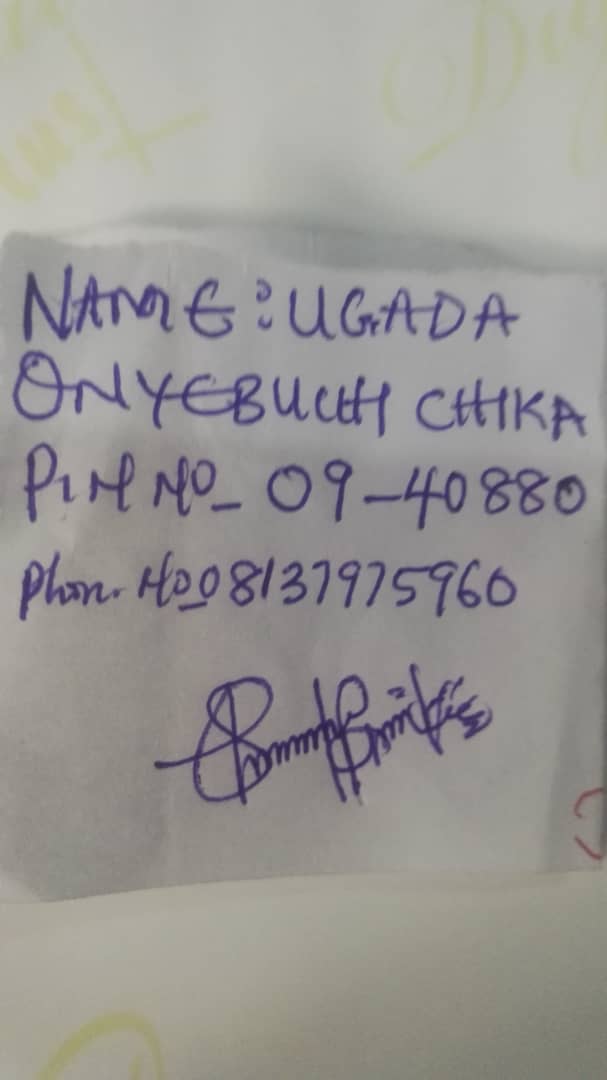 NAME: UGADA
ONYEBUCHI CHIKA
PIN NO_ 09-40880
Phon. No 08137975960